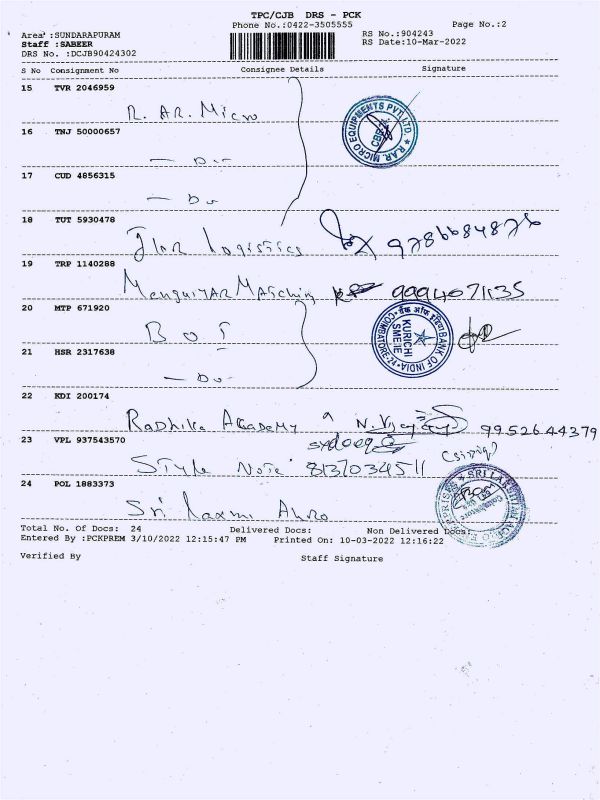 TPC/CJB DRS - PCK
Phone No.:0422-3505555 Page No.:2
Area :SUNDARAPURAM RS No.:904243
Staff :SABEER RS Date:10-Mar-2022
DRS No. :DCJB90424302
S No Consignment No Consignee Details Signature
15 TVR 2046959
R. AR. Micro
R.AR. MICRO EQUIPMENTS PVT. LTD.
16 TNJ 50000657
— Do —
17 CUD 4856315
— Do
18 TUT 5930478
Logistics
19 TRP 1140288
9994071135
20 MTP 671920
BOI
BANK OF INDIA
KURICHI
COIMBATORE-24
21 HSR 2317638
— Do —
22 KDI 200174
Radhika Academy 9952644379
23 VPL 937543570
Style Note 8137034511
24 POL 1883373
Sri Laxmi
Total No. Of Docs: 24 Delivered Docs: Non Delivered Docs:
Entered By :PCKPREM 3/10/2022 12:15:47 PM Printed On: 10-03-2022 12:16:22
Verified By Staff Signature